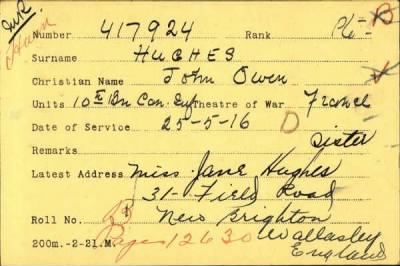 Number 417924 Rank Pte B
Surname HUGHES
Christian Name John Owen
Units 10th Bn Can. Inf Theatre of War France
Date of Service 25-5-16 D
Remarks Sister
Latest Address Miss Jane Hughes
31- Field Road
Roll No. B New Brighton
200m.-2-21.M. Page 12630 Wallasley
England